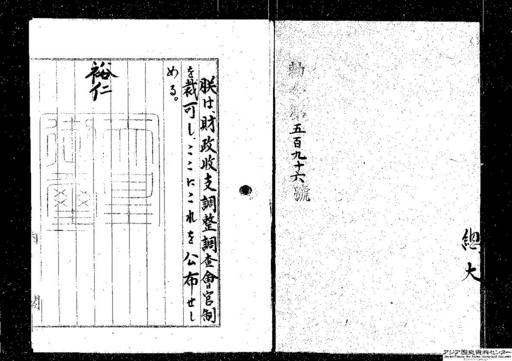 勅令第五百九十六號
總大
朕は、財政收支調整調査會官制
を裁可し、ここにこれを公布せし
める。
裕仁
天皇御璽
アジア歴史資料センター